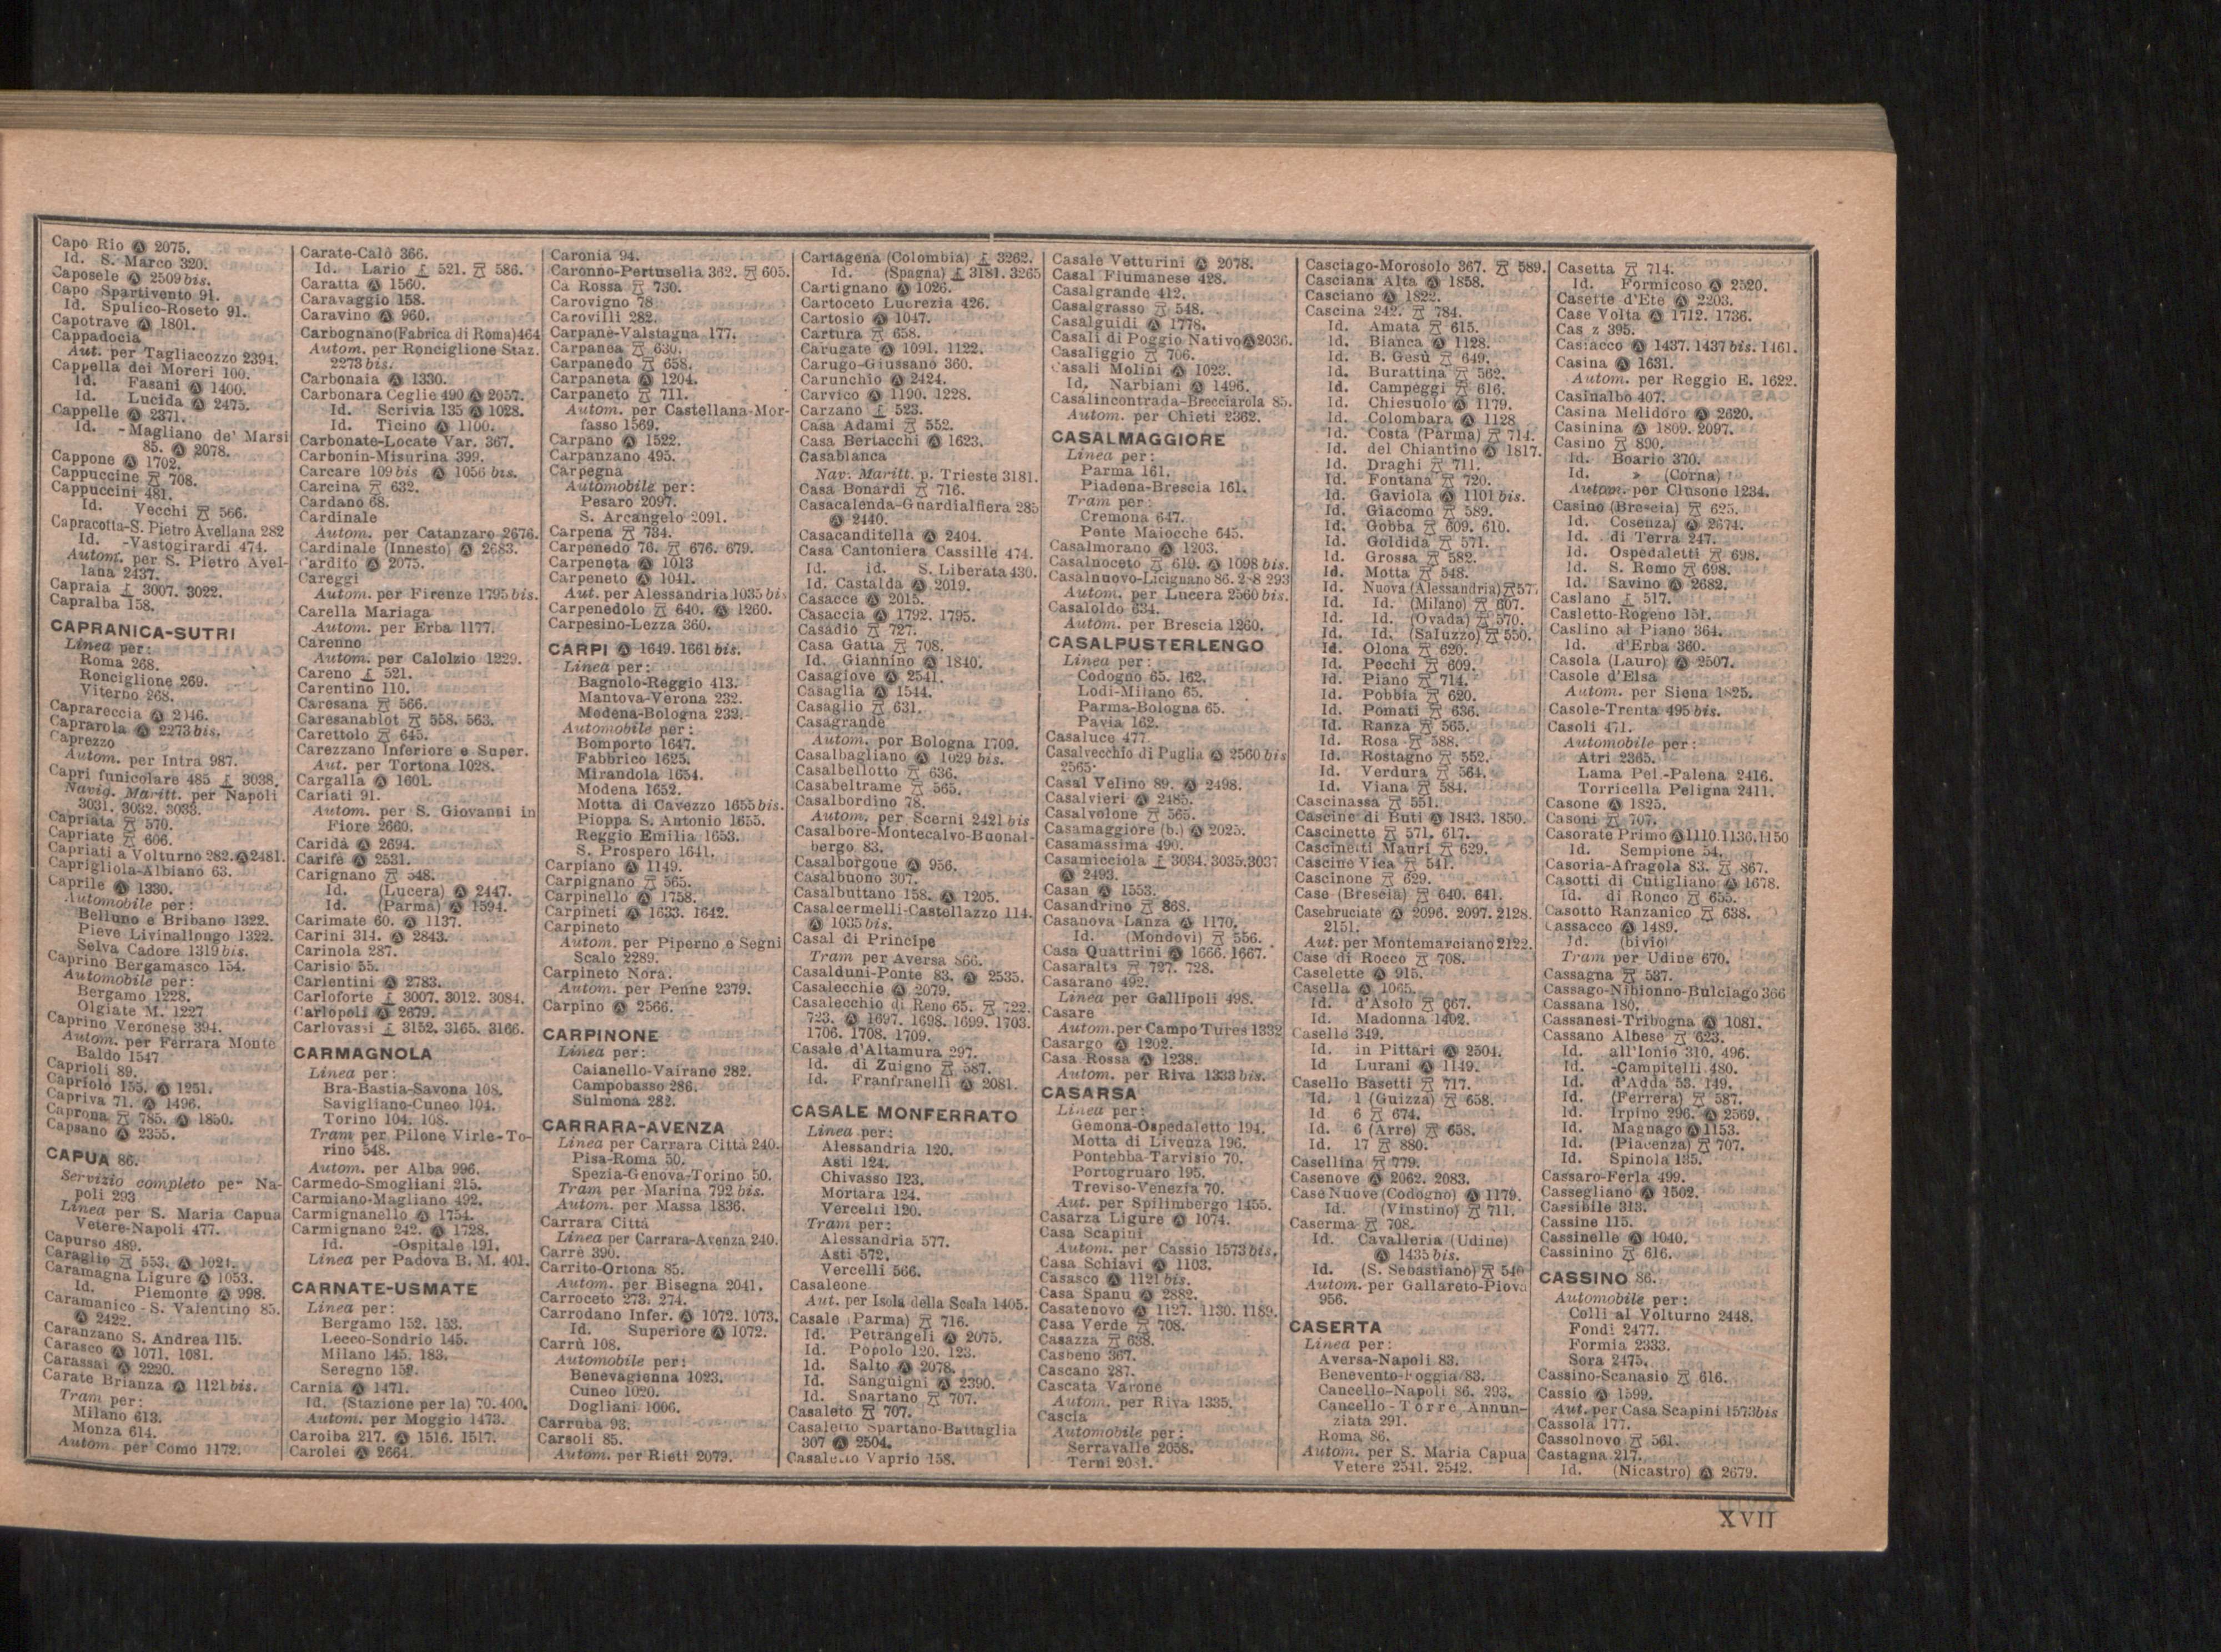 Capo Rio Ⓐ 2075.
Id. S. Marco 320.
Caposele Ⓐ 2509 bis.
Capo Spartivento 91.
Id. Spulico-Roseto 91.
Capotrave Ⓐ 1801.
Cappadocia
Aut. per Tagliacozzo 2394.
Cappella dei Moreri 100.
Id. Fasani Ⓐ 1400.
Id. Lucida Ⓐ 2475.
Cappelle Ⓐ 2371.
Id. -Magliano de' Marsi
85. Ⓐ 2078.
Cappone Ⓐ 1702.
Cappuccine 708.
Cappuccini 481.
Id. Vecchi 566.
Capracotta-S. Pietro Avellana 282
Id. -Vastogirardi 474.
Autom. per S. Pietro Avel-
lana 2437.
Capraia 3007. 3022.
Capralba 158.
CAPRANICA-SUTRI
Linea per:
Roma 268.
Ronciglione 269.
Viterno 268.
Caprareccia Ⓐ
Caprarola Ⓐ 2273 bis.
Caprezzo
Autom. per Intra 987.
Capri funicolare 485 3038.
Navig. Maritt. per Napoli
3031. 3032. 3033.
Capriata 570.
Capriate 606.
Capriati a Volturno 282. Ⓐ 2481.
Caprigliola-Albiano 63.
Caprile Ⓐ 1330.
Automobile per:
Belluno e Bribano 1322.
Pieve Livinallongo 1322.
Selva Cadore 1319 bis.
Caprino Bergamasco 154.
Automobile per:
Bergamo 1228.
Olgiate M. 1227
Caprino Veronese 394.
Autom. per Ferrara Monte
Baldo 1547
Caprioli 89.
Capriolo 155. Ⓐ 1251.
Capriva 71. Ⓐ 1496.
Caprona 785. Ⓐ 1850.
Capsano Ⓐ 2355.
CAPUA 86.
Servizio completo per Na-
poli 293
Linea per S. Maria Capua
Vetere-Napoli 477.
Capurso 489.
Caraglio 553. Ⓐ 1021.
Caramagna Ligure Ⓐ 1053.
Id. Piemonte Ⓐ 998.
Caramanico-S. Valentino 85.
Ⓐ 2422.
Caranzano S. Andrea 115.
Carasco Ⓐ 1071. 1081.
Carassai Ⓐ 2220.
Carate Brianza Ⓐ 1121 bis.
Tram per:
Milano 613.
Monza 614.
Autom. per Como 1172.
Carate-Calò 366.
Id. Lario 521. 586.
Caratta Ⓐ 1560.
Caravaggio 158.
Caravino Ⓐ 960.
Carbognano (Fabrica di Roma) 464
Autom. per Ronciglione Staz.
2273 bis.
Carbonaia Ⓐ 1330.
Carbonara Ceglie 490 Ⓐ 2057.
Id. Scrivia 135 Ⓐ 1028.
Id. Ticino Ⓐ 1100.
Carbonate-Locate Var. 367.
Carbonin-Misurina 399.
Carcare 109 bis Ⓐ 1056 bis.
Carcina 632.
Cardano 68.
Cardinale
Autom. per Catanzaro 2676.
Cardinale (Innesto) Ⓐ 2683.
Cardito Ⓐ 2075.
Careggi
Autom. per Firenze 1795 bis.
Carella Mariaga
Autom. per Erba 1177.
Carenno
Autom. per Calolzio 1229.
Careno 521.
Carentino 110.
Caresana 566.
Caresanablot 558. 563.
Carettolo 645.
Carezzano Inferiore e Super.
Aut. per Tortona 1028.
Cargalla Ⓐ 1601.
Cariati 91.
Autom. per S. Giovanni in
Fiore 2660.
Caridà Ⓐ 2694.
Carife Ⓐ 2531.
Carignano 548.
Id. (Lucera) Ⓐ 2447.
Id. (Parma) Ⓐ 1594.
Carimate 60. Ⓐ 1137.
Carini 314. Ⓐ 2843.
Carinola 287.
Carisio 55.
Carlentini Ⓐ 2783.
Carloforte 3007. 3012. 3084.
Carlopoli Ⓐ 2679.
Carlovassi 3152. 3165. 3166.
CARMAGNOLA
Linea per:
Bra-Bastia-Savona 108.
Savigliano-Cuneo 104.
Torino 104. 108.
Tram per Pilone Virle-To-
rino 548.
Autom. per Alba 996.
Carmedo-Smogliani 215.
Carmiano-Magliano 492.
Carmignanello Ⓐ 1754.
Carmignano 242. Ⓐ 1728.
Id. -Ospitale 191.
Linea per Padova B. M. 401.
CARNATE-USMATE
Linea per:
Bergamo 152. 153.
Lecco-Sondrio 145.
Milano 145. 183.
Seregno 152.
Carnia Ⓐ 1471.
Id. (Stazione per la) 70. 400.
Autom. per Moggio 1473.
Caroiba 217. Ⓐ 1516. 1517.
Carolei Ⓐ 2664.
Caronia 94.
Caronno-Pertusella 362. 605.
Ca Rossa 730.
Carovigno 78
Carovilli 282.
Carpanè-Valstagna 177.
Carpanea 630.
Carpanedo 658.
Carpaneta Ⓐ 1204.
Carpaneto 711.
Autom. per Castellana-Mor-
fasso 1569.
Carpano Ⓐ 1522.
Carpanzano 495.
Carpegna
Automobile per:
Pesaro 2097.
S. Arcangelo 2091.
Carpena 734.
Carpenedo 76. 676. 679.
Carpeneta Ⓐ 1013
Carpeneto Ⓐ 1041.
Aut. per Alessandria 1035 bis
Carpenedolo 640. Ⓐ 1260.
Carpesino-Lezza 360.
CARPI Ⓐ 1649. 1661 bis.
Linea per:
Bagnolo-Reggio 413.
Mantova-Verona 232.
Modena-Bologna 232.
Automobile per:
Bomporto 1647.
Fabbrico 1625.
Mirandola 1654.
Modena 1652.
Motta di Cavezzo 1655 bis.
Pioppa S. Antonio 1655.
Reggio Emilia 1653.
S. Prospero 1641.
Carpiano Ⓐ 1149.
Carpignano 565.
Carpinello Ⓐ 1758.
Carpineti Ⓐ 1633. 1642.
Carpineto
Autom. per Piperno e Segni
Scalo 2289.
Carpineto Nora.
Autom. per Penne 2379.
Carpino Ⓐ 2566.
CARPINONE
Linea per:
Caianello-Vairano 282.
Campobasso 286.
Sulmona 282.
CARRARA-AVENZA
Linea per Carrara Città 240.
Pisa-Roma 50.
Spezia-Genova-Torino 50.
Tram per Marina 792 bis.
Autom. per Massa 1836.
Carrara Città
Linea per Carrara-Avenza 240.
Carrè 390.
Carrito-Ortona 85.
Autom. per Bisegna 2041.
Carroceto 273. 274.
Carrodano Infer. Ⓐ 1072. 1073.
Id. Superiore Ⓐ 1072.
Carrù 108.
Automobile per:
Benevagienna 1023.
Cuneo 1020.
Dogliani 1006.
Carruba 93.
Carsoli 85.
Autom. per Rieti 2079.
Cartagena (Colombia) 3262.
Id. (Spagna) 3181. 3265
Cartignano Ⓐ 1026.
Cartoceto Lucrezia 426.
Cartosio Ⓐ 1047.
Cartura 658.
Carugate Ⓐ 1091. 1122.
Carugo-Giussano 360.
Carunchio Ⓐ 2424.
Carvico Ⓐ 1190. 1228.
Carzano 523.
Casa Adami 552.
Casa Bertacchi Ⓐ 1623.
Casablanca
Nav. Maritt. p. Trieste 3181.
Casa Bonardi 716.
Casacalenda-Guardialfiera 285
Ⓐ 2440.
Casacanditella Ⓐ 2404.
Casa Cantoniera Cassille 474.
Id. id. S. Liberata 430.
Id. Castalda Ⓐ 2019.
Casacce Ⓐ 2015.
Casaccia Ⓐ 1792. 1795.
Casadio 727.
Casa Gatta 708.
Id. Giannino Ⓐ 1840.
Casagiove Ⓐ 2541.
Casaglia Ⓐ 1544.
Casaglio 631.
Casagrande
Autom. per Bologna 1709.
Casalbagliano Ⓐ 1029 bis.
Casalbellotto 636.
Casabeltrame 565.
Casalbordino 78.
Autom. per Scerni 2421 bis
Casalbore-Montecalvo-Buonal-
bergo 83.
Casalborgone Ⓐ 956.
Casalbuono 307.
Casalbuttano 158. Ⓐ 1205.
Casalcermelli-Castellazzo 114.
Ⓐ 1035 bis.
Casal di Principe
Tram per Aversa 866.
Casalduni-Ponte 83. Ⓐ 2535.
Casalecchie Ⓐ 2079.
Casalecchio di Reno 65. 722.
723. Ⓐ 1697. 1698. 1699. 1703.
1706. 1708. 1709.
Casale d'Altamura 297.
Id. di Zuigno 587.
Id. Franfranelli Ⓐ 2081.
CASALE MONFERRATO
Linea per:
Alessandria 120.
Asti 124.
Chivasso 123.
Mortara 124.
Vercelli 120.
Tram per:
Alessandria 577.
Asti 572.
Vercelli 566.
Casaleone
Aut. per Isola della Scala 1405.
Casale (Parma) 716.
Id. Petrangeli Ⓐ 2075.
Id. Popolo 120. 123.
Id. Salto Ⓐ 2078.
Id. Sanguigni Ⓐ 2390.
Id. Spartano 707.
Casaleto 707.
Casaletto Spartano-Battaglia
307 Ⓐ 2504.
Casaletto Vaprio 158.
Casale Vetturini Ⓐ 2078.
Casal Fiumanese 428.
Casalgrande 412.
Casalgrasso 548.
Casalguidi Ⓐ 1778.
Casali di Poggio Nativo Ⓐ 2036.
Casaliggio 706.
Casali Molini Ⓐ 1023.
Id. Narbiani Ⓐ 1496.
Casalincontrada-Brecciarola 85.
Autom. per Chieti 2362.
CASALMAGGIORE
Linea per:
Parma 161.
Piadena-Brescia 161.
Tram per:
Cremona 647.
Ponte Maiocche 645.
Casalmorano Ⓐ 1203.
Casalnoceto 619. Ⓐ 1098 bis.
Casalnuovo-Licignano 86. 288 293
Autom. per Lucera 2560 bis.
Casaloldo 634.
Autom. per Brescia 1260.
CASALPUSTERLENGO
Linea per:
Codogno 65. 162.
Lodi-Milano 65.
Parma-Bologna 65.
Pavia 162.
Casaluce 477
Casalvecchio di Puglia Ⓐ 2560 bis
2565.
Casal Velino 89. Ⓐ 2498.
Casalvieri Ⓐ 2485.
Casalvolone 565.
Casamaggiore (b.) Ⓐ 2025.
Casamassima 490.
Casamicciola 3034. 3035. 3037
Ⓐ 2493.
Casan Ⓐ 1553.
Casandrino 868.
Casanova Lanza Ⓐ 1170.
Id. (Mondovì) 556.
Casa Quattrini Ⓐ 1666. 1667.
Casaralta 727. 728.
Casarano 492.
Linea per Gallipoli 498.
Casare
Autom. per Campo Tures 1332
Casargo Ⓐ 1202.
Casa Rossa Ⓐ 1238.
Autom. per Riva 1333 bis.
CASARSA
Linea per:
Gemona-Ospedaletto 194.
Motta di Livenza 196.
Pontebba-Tarvisio 70.
Portogruaro 195.
Treviso-Venezia 70.
Aut. per Spilimbergo 1455.
Casarza Ligure Ⓐ 1074.
Casa Scapini
Autom. per Cassio 1573 bis.
Casa Schiavi Ⓐ 1103.
Casasco Ⓐ 1121 bis.
Casa Spanu Ⓐ 2882.
Casatenovo Ⓐ 1127. 1130. 1189.
Casa Verde 708.
Casazza 638.
Casbeno 367.
Cascano 287.
Cascata Varone
Autom. per Riva 1335.
Cascia
Automobile per:
Serravalle 2058.
Terni
Casciago-Morosolo 367. 589.
Casciana Alta Ⓐ 1858.
Casciano Ⓐ 1822.
Cascina 242. 784.
Id. Amata 615.
Id. Bianca Ⓐ 1128.
Id. B. Gesù 649.
Id. Burattina 562.
Id. Campeggi 616.
Id. Chiesuolo Ⓐ 1179.
Id. Colombara Ⓐ 1128
Id. Costa (Parma) 714.
Id. del Chiantino Ⓐ 1817.
Id. Draghi 711.
Id. Fontana 720.
Id. Gaviola Ⓐ 1101 bis.
Id. Giacomo 589.
Id. Gobba 609. 610.
Id. Goldida 571.
Id. Grossa 582.
Id. Motta 548.
Id. Nuova (Alessandria)
Id. Id. (Milano) 607.
Id. Id. (Ovada) 570.
Id. Id. (Saluzzo) 550.
Id. Olona 620.
Id. Pecchi 609.
Id. Piano 714.
Id. Pobbia 620.
Id. Pomati 636.
Id. Ranza 565.
Id. Rosa 588.
Id. Rostagno 552.
Id. Verdura 564.
Id. Viana 584.
Cascinassa 551.
Cascine di Buti Ⓐ 1843. 1850.
Cascinette 571. 617.
Cascinetti Mauri 629.
Cascine Vica 541.
Cascinone 629.
Case (Brescia) 640. 641.
Casebruciate Ⓐ 2096. 2097. 2128.
2151.
Aut. per Montemarciano 2122.
Case di Rocco 708.
Caselette Ⓐ 915.
Casella Ⓐ 1065.
Id. d'Asolo 667.
Id. Madonna 1402.
Caselle 349.
Id. in Pittari Ⓐ 2504.
Id Lurani Ⓐ 1149.
Casello Basetti 717.
Id. 1 (Guizza) 658.
Id 6 674.
Id. 6 (Arre) 658.
Id. 17 880.
Casellina 779.
Casenove Ⓐ 2062. 2083.
Case Nuove (Codogno) Ⓐ 1179.
Id. (Vinstino) 711.
Caserma 708.
Id. Cavalleria (Udine)
Ⓐ 1435 bis.
Id. (S. Sebastiano)
Autom. per Gallareto-Piova
956.
CASERTA
Linea per:
Aversa-Napoli 83.
Benevento-Foggia 83.
Cancello-Napoli 86. 293.
Cancello-Torre Annun-
ziata 291.
Roma 86.
Autom. per S. Maria Capua
Vetere 2541. 2542.
Casetta 714.
Id. Formicoso Ⓐ 2520.
Casette d'Ete Ⓐ 2203.
Case Volta Ⓐ 1712. 1736.
Cas z 395.
Casiacco Ⓐ 1437. 1437 bis. 1461.
Casina Ⓐ 1631.
Autom. per Reggio E. 1622.
Casinalbo 407.
Casina Melidoro Ⓐ 2620.
Casinina Ⓐ 1809. 2097.
Casino 890.
Id. Boario 370.
Id. » (Corna)
Autom. per Clusone 1234.
Casino (Brescia) 625.
Id. Cosenza) Ⓐ 2674.
Id. di Terra 247.
Id. Ospedaletti 698.
Id. S. Remo 698.
Id. Savino Ⓐ 2682.
Caslano 517.
Casletto-Rogeno 151.
Caslino al Piano 364.
Id. d'Erba 360.
Casola (Lauro) Ⓐ 2507.
Casole d'Elsa
Autom. per Siena 1825.
Casole-Trenta 495 bis.
Casoli 471.
Automobile per:
Atri 2365.
Lama Pel.-Palena 2416.
Torricella Peligna 2411.
Casone Ⓐ 1825.
Casoni 707.
Casorate Primo Ⓐ 1110. 1136. 1150
Id. Sempione 54.
Casoria-Afragola 83. 867.
Casotti di Cutigliano Ⓐ 1678.
Id. di Ronco 655.
Casotto Ranzanico 638.
Cassacco Ⓐ 1489.
Id. (bivio)
Tram per Udine 670.
Cassagna 537.
Cassago-Nibionno-Bulciago 366
Cassana 180.
Cassanesi-Tribogna Ⓐ 1081.
Cassano Albese 623.
Id. all'Ionio 310. 496.
Id. -Campitelli 480.
Id. d'Adda 53. 149.
Id. (Ferrera) 587.
Id. Irpino 296. Ⓐ 2569.
Id. Magnago Ⓐ 1153.
Id. (Piacenza) 707.
Id. Spinola 135.
Cassaro-Ferla 499.
Cassegliano Ⓐ 1502.
Cassibile 313.
Cassine 115.
Cassinelle Ⓐ 1040.
Cassinino 616.
CASSINO 86.
Automobile per:
Colli al Volturno 2448.
Fondi 2477.
Formia 2333.
Sora 2475.
Cassino-Scanasio 616.
Cassio Ⓐ 1599.
Aut. per Casa Scapini 1573 bis
Cassola 177.
Cassolnovo 561.
Castagna 217.
Id. (Nicastro) Ⓐ 2679.
XVII